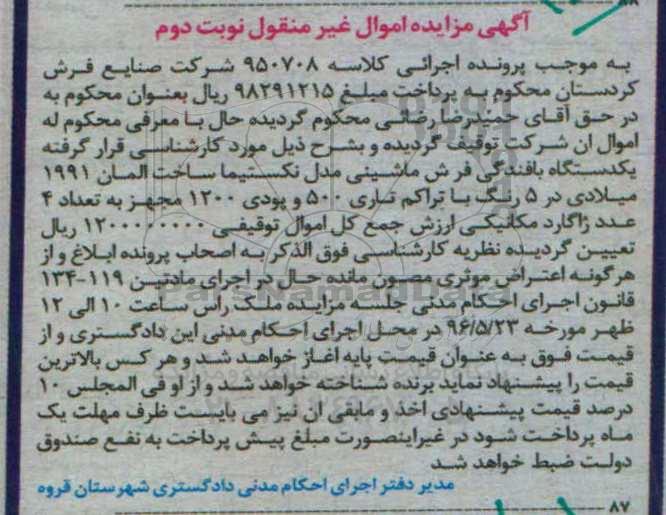 آگهی مزایده اموال غیر منقول نوبت دوم
به موجب پرونده اجرائی کلاسه ۹۵۰۷۰۸ شرکت صنایع فرش
کردستان محکوم به پرداخت مبلغ ۹۸۲۹۱۲۱۵ ریال بعنوان محکوم به
در حق آقای حمیدرضا رضائی محکوم گردیده حال با معرفی محکوم له
اموال ان شرکت توقیف گردیده و بشرح ذیل مورد کارشناسی قرار گرفته
یکدستگاه بافندگی فر ش ماشینی مدل نکستیما ساخت المان ۱۹۹۱
میلادی در ۵ رنگ با تراکم تاری ۵۰۰ و پودی ۱۲۰۰ مجهز به تعداد ۴
عدد ژاگارد مکانیکی ارزش جمع کل اموال توقیفی ۱۲۰۰۰۰۰۰۰۰ ریال
تعیین گردیده نظریه کارشناسی فوق الذکر به اصحاب پرونده ابلاغ و از
هرگونه اعتراض موثری مصون مانده حال در اجرای مادتین ۱۱۹-۱۳۴
قانون اجرای احکام مدنی جلسه مزایده ملک راس ساعت ۱۰ الی ۱۲
ظهر مورخه ۹۶/۵/۲۳ در محل اجرای احکام مدنی این دادگستری و از
قیمت فوق به عنوان قیمت پایه اغاز خواهد شد و هر کس بالاترین
قیمت را پیشنهاد نماید برنده شناخته خواهد شد و از او فی المجلس ۱۰
درصد قیمت پیشنهادی اخذ و مابقی ان نیز می بایست ظرف مهلت یک
ماه پرداخت شود در غیراینصورت مبلغ پیش پرداخت به نفع صندوق
دولت ضبط خواهد شد
مدیر دفتر اجرای احکام مدنی دادگستری شهرستان قروه
۸۷